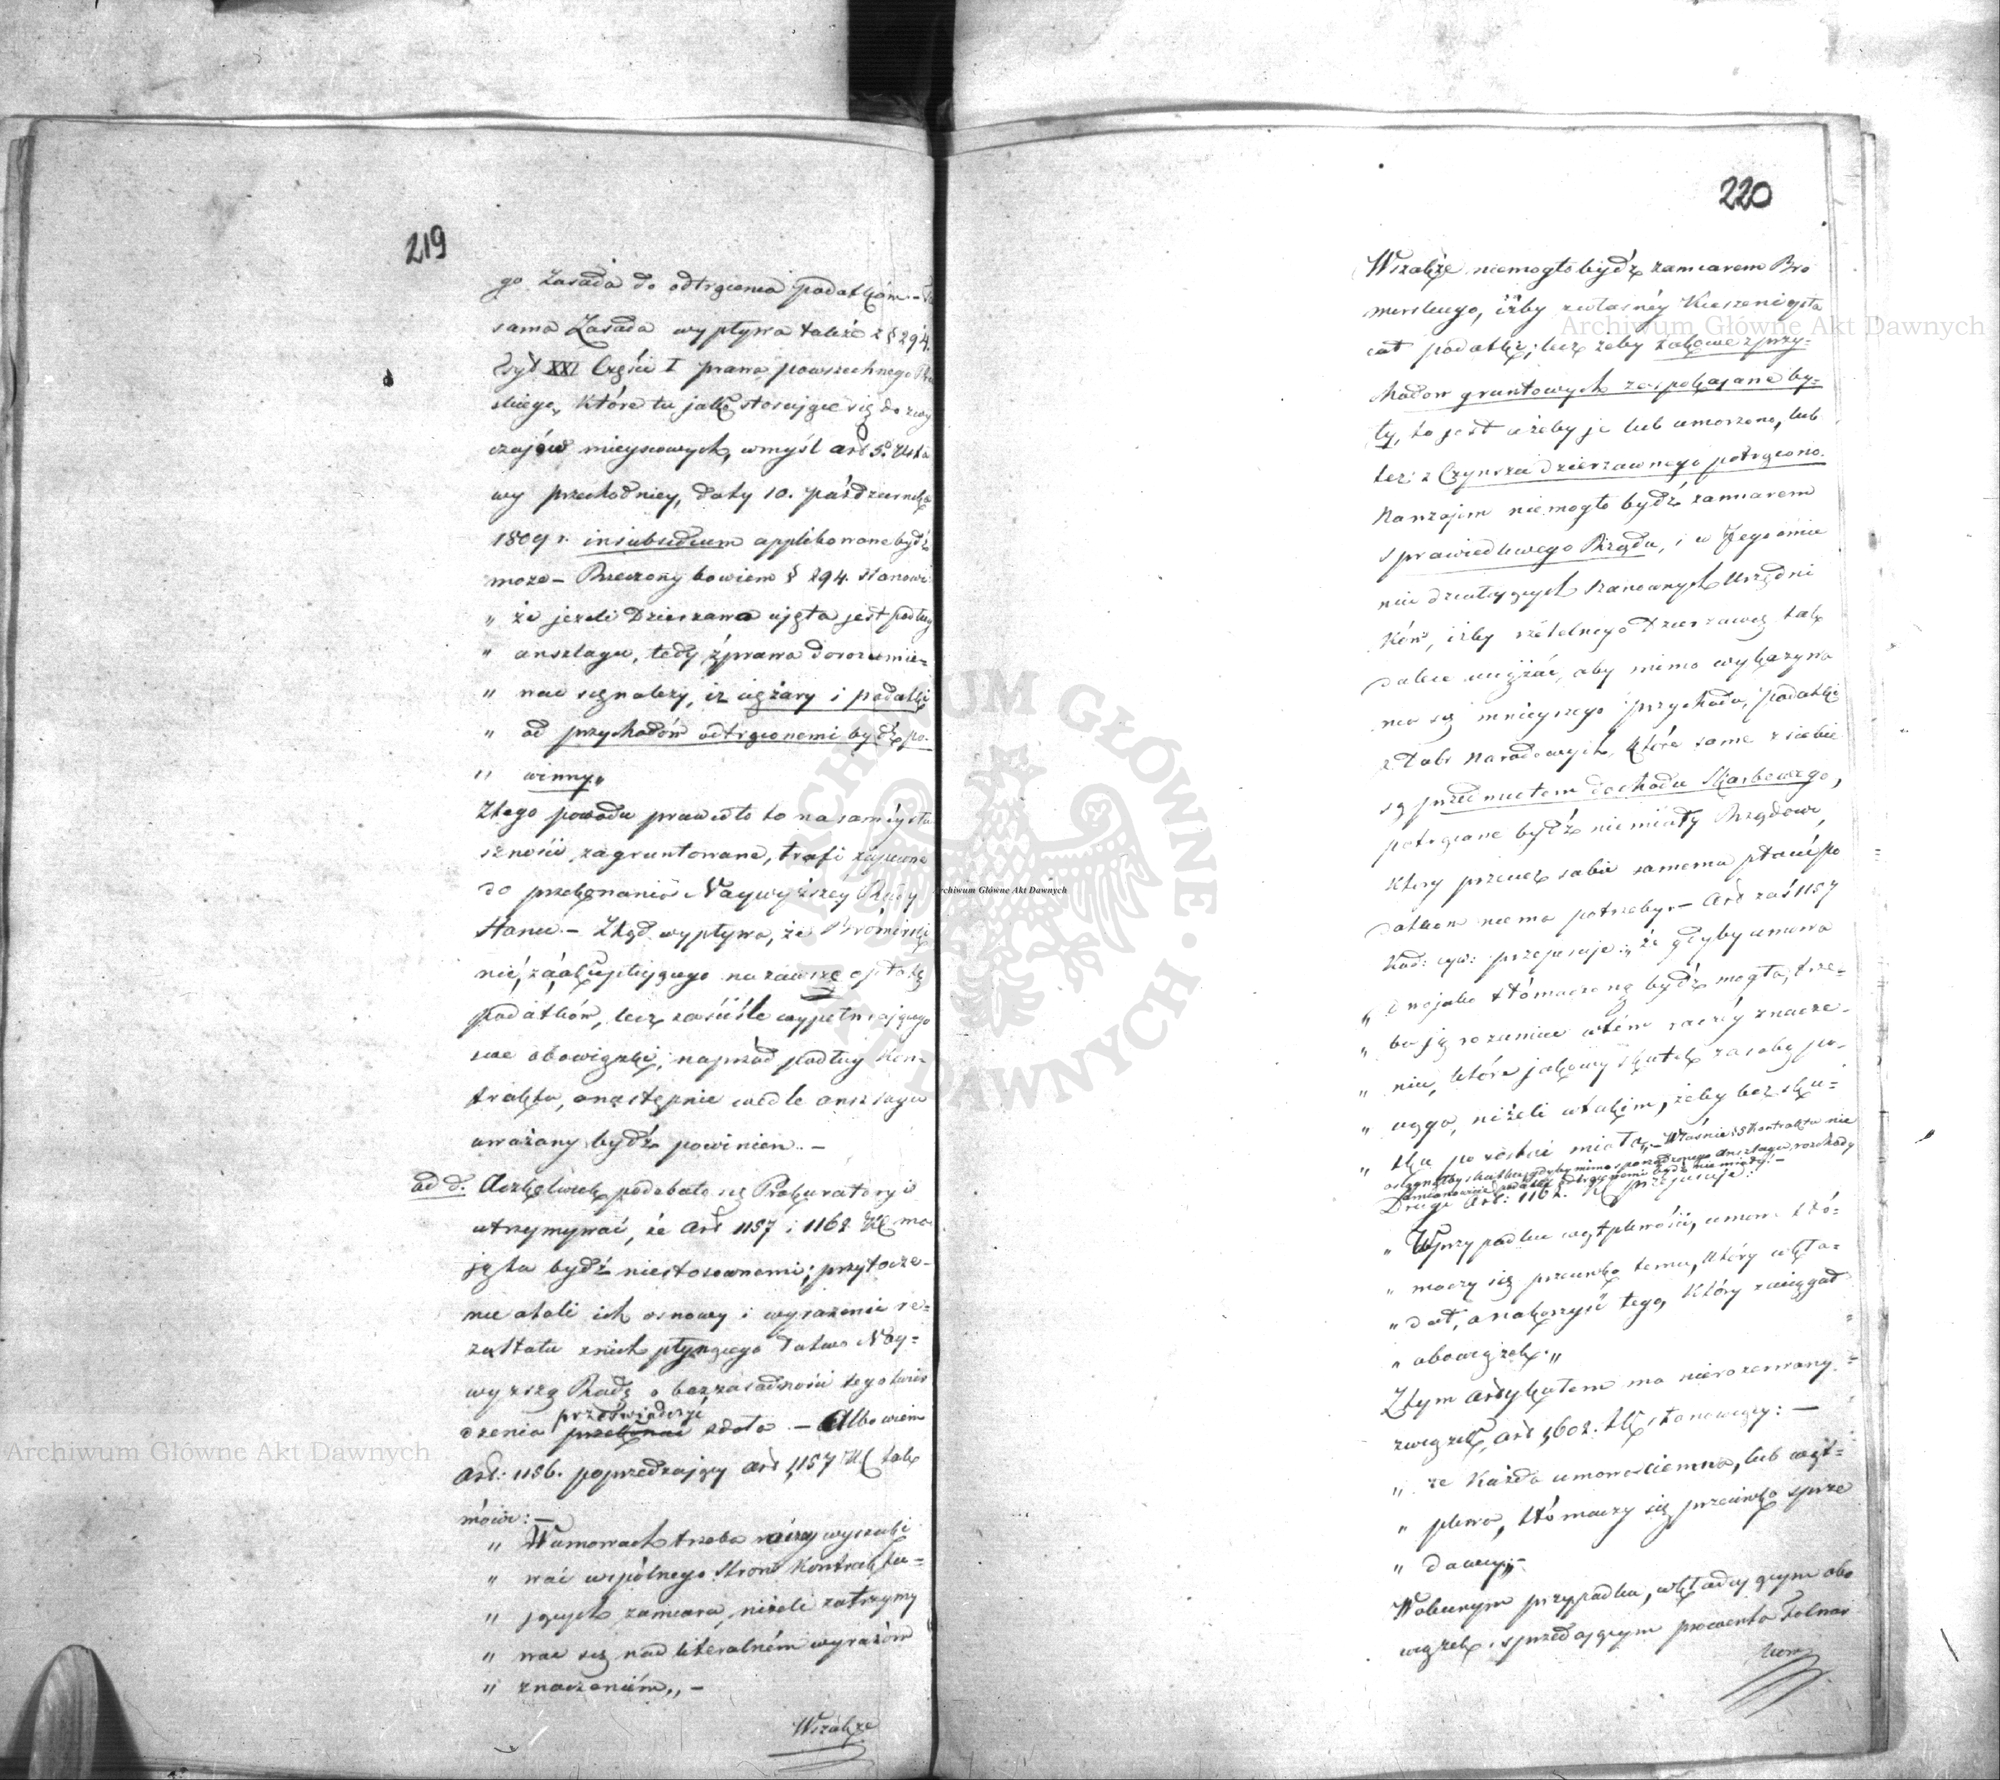 219
go Zasada do odtrącenia podatków. – Ta
sama Zasada wypływa także z § 294.
Tyt XXI Części I prawa powszechnego Pru
skiego, które tu jako stosujące się do zwy
czajów mieyscowych, wmyśl art 5. Usta
wy przechodniey, daty 10. Października
1809 r. in subsidium applikowane bydź
może – Rzeczony bowiem § 294. stanowi
„ że jeżeli Dzierzawa ujęta jest podług
„ anszlagu, tedy z prawa dorozumie-
„ wać się należy, iż ciężary i podatki
„ od przychodów odtrąconemi bydź po-
„ winny„
Z tego powodu prawidło to na saméy słu
szności zagruntowane, trafi zapewne
do przekonania Naywyższey Rady
Stanu. – Ztąd wypływa, że Bromirski
nie, za akceptującego na zawsze opłatę
podatków, lecz za ściśle wypełniającego
swe obowiązki, naprzód podług Kon-
traktu, a następnie wedle anszlagu
uważany bydź powinien. –
ad d. Aczkolwiek podobało się Prokuratoryi
utrzymywać, że art 1157 i 1162 KC ma
ją tu bydź niestosownemi; przytocze-
nie atoli ich osnowy i wyrażenie re-
zultatu z nich płynącego łatwo Nay-
wyższą Radę o bezzasadności tego twier
przeświadczyć
dzenia przekonać zdoła – Albowiem
Art: 1156. poprzedzający art 1157 KC tak
mówi: –
„ W umowach trzeba raczey wyszuki
„ wać wspólnego stron kontraktu-
„ jących zamiaru, niżeli zatrzymy
„ wać się nad literalném wyrazów
„ znaczeniém„ –
Wszakże
220
Wszakże niemogło bydź zamiarem Bro
mirskiego, iżby z własnéy kieszeni opła
cał podatki; lecz żeby takowe z przy-
chodów gruntowych zaspokajane by-
ły, to jest ażeby je lub umorzono, lub
też z Czynszu dzierzawnego potrącono.
Nawzajem niemogło bydź zamiarem
sprawiedliwego Rządu, i w Jego imie
niu działających szanownych Urzędni
ków, iżby rzetelnego dzierzawcę tak
dalece uciążać, aby mimo wykazywa
nia się mnieyszego przychodu, podatki
z dóbr Narodowych, które same z siebie
są przedmiotem dochodu Skarbowego,
potrącane bydź niemiały Rządowi,
który przecież sobie samemu płacić po
datków niema potrzeby. – Art zaś 1157
Kod: cyw: przepisuje: „że gdyby umowa
„ dwojako tłómaczoną bydź mogła, trze-
„ ba ją rozumieć w tém raczéy znacze-
„ niu, które jakowy skutek za sobą po-
„ ciąga, niżeli w takim, żeby bez sku-
„ tku pozostać miała„ – Właśnie z Kontraktu nie
osiągnąłby skutku, gdyby mimo sporządzonego anszlagu rozchody
zamienowicie podatki odtrąconemi bydź nie miały. –
Drugi Art: 1162. KC przepisuje:
„ W przypadku wątpliwości, umowa tłó-
„ maczy się przeciwko temu, który wkła-
„ dał, a na korzyść tego, który zaciągał
„ obowiązek.„
Z tym Artykułem ma nierozerwany
związek, art 1602. KC stanowiący: –
„ że każda umowa ciemna, lub wąt-
„ pliwa, tłómaczy się przeciwko sprze
„ dawcy„ –
W obecnym przypadku, wkładającym obo
wiązek i sprzedającym prowenta folwar
ków